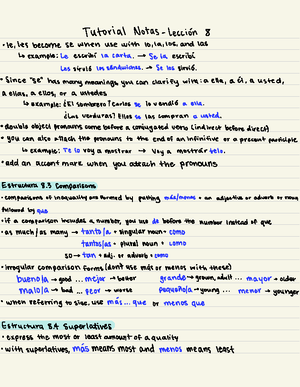 Tutorial Notas - Lección 8
• le, les become se when use with lo, la, los, and las
↳ example: Le escribí la carta. → Se la escribí.
Les sirvió los sándwiches. → Se los sirvió.
• Since "se" has many meanings, you can clarify w/: a ella, a él, a usted,
a ellas, a ellos, or a ustedes
↳ example: ¿El sombrero? Carlos se lo vendió a ella.
¿Las verduras? Ellos se las compran a usted.
• double object pronouns come before a conjugated verb (indirect before direct)
• you can also attach the pronouns to the end of an infinitive or a present participle
↳ example: Te lo voy a mostrar → Voy a mostrártelo.
• add an accent mark when you attach the pronouns
Estructura 8.3 Comparisons
• comparisons of inequality are formed by putting más/menos + an adjective or adverb or noun
followed by que
• if a comparison includes a number, you use de before the number instead of que
• as much/as many → tanto/a + singular noun + como
tantos/as + plural noun + como
so → tan + adj. or adverb + como
• irregular comparison forms (dont use más or menos with these)
bueno/a → good ... mejor → better grande → grown, adult ... mayor → older
malo/a → bad ... peor → worse pequeño/a → young ... menor → younger
• when referring to size, use más... que or menos que
Estructura 8.4 Superlatives
• express the most or least amount of a quality
• with superlatives, más means most and menos means least